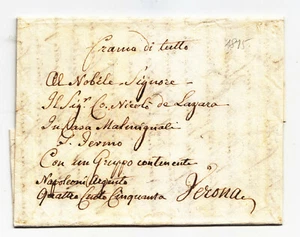 franca di tutto
1815
Al Nobile Signore
Il Sigr. Co. Nicolò de Lazara
In Casa Malmignati
S. Fermo
Con un Gruppo contenente
Napoleoni Argento
Quattro Cento Cinquanta Verona